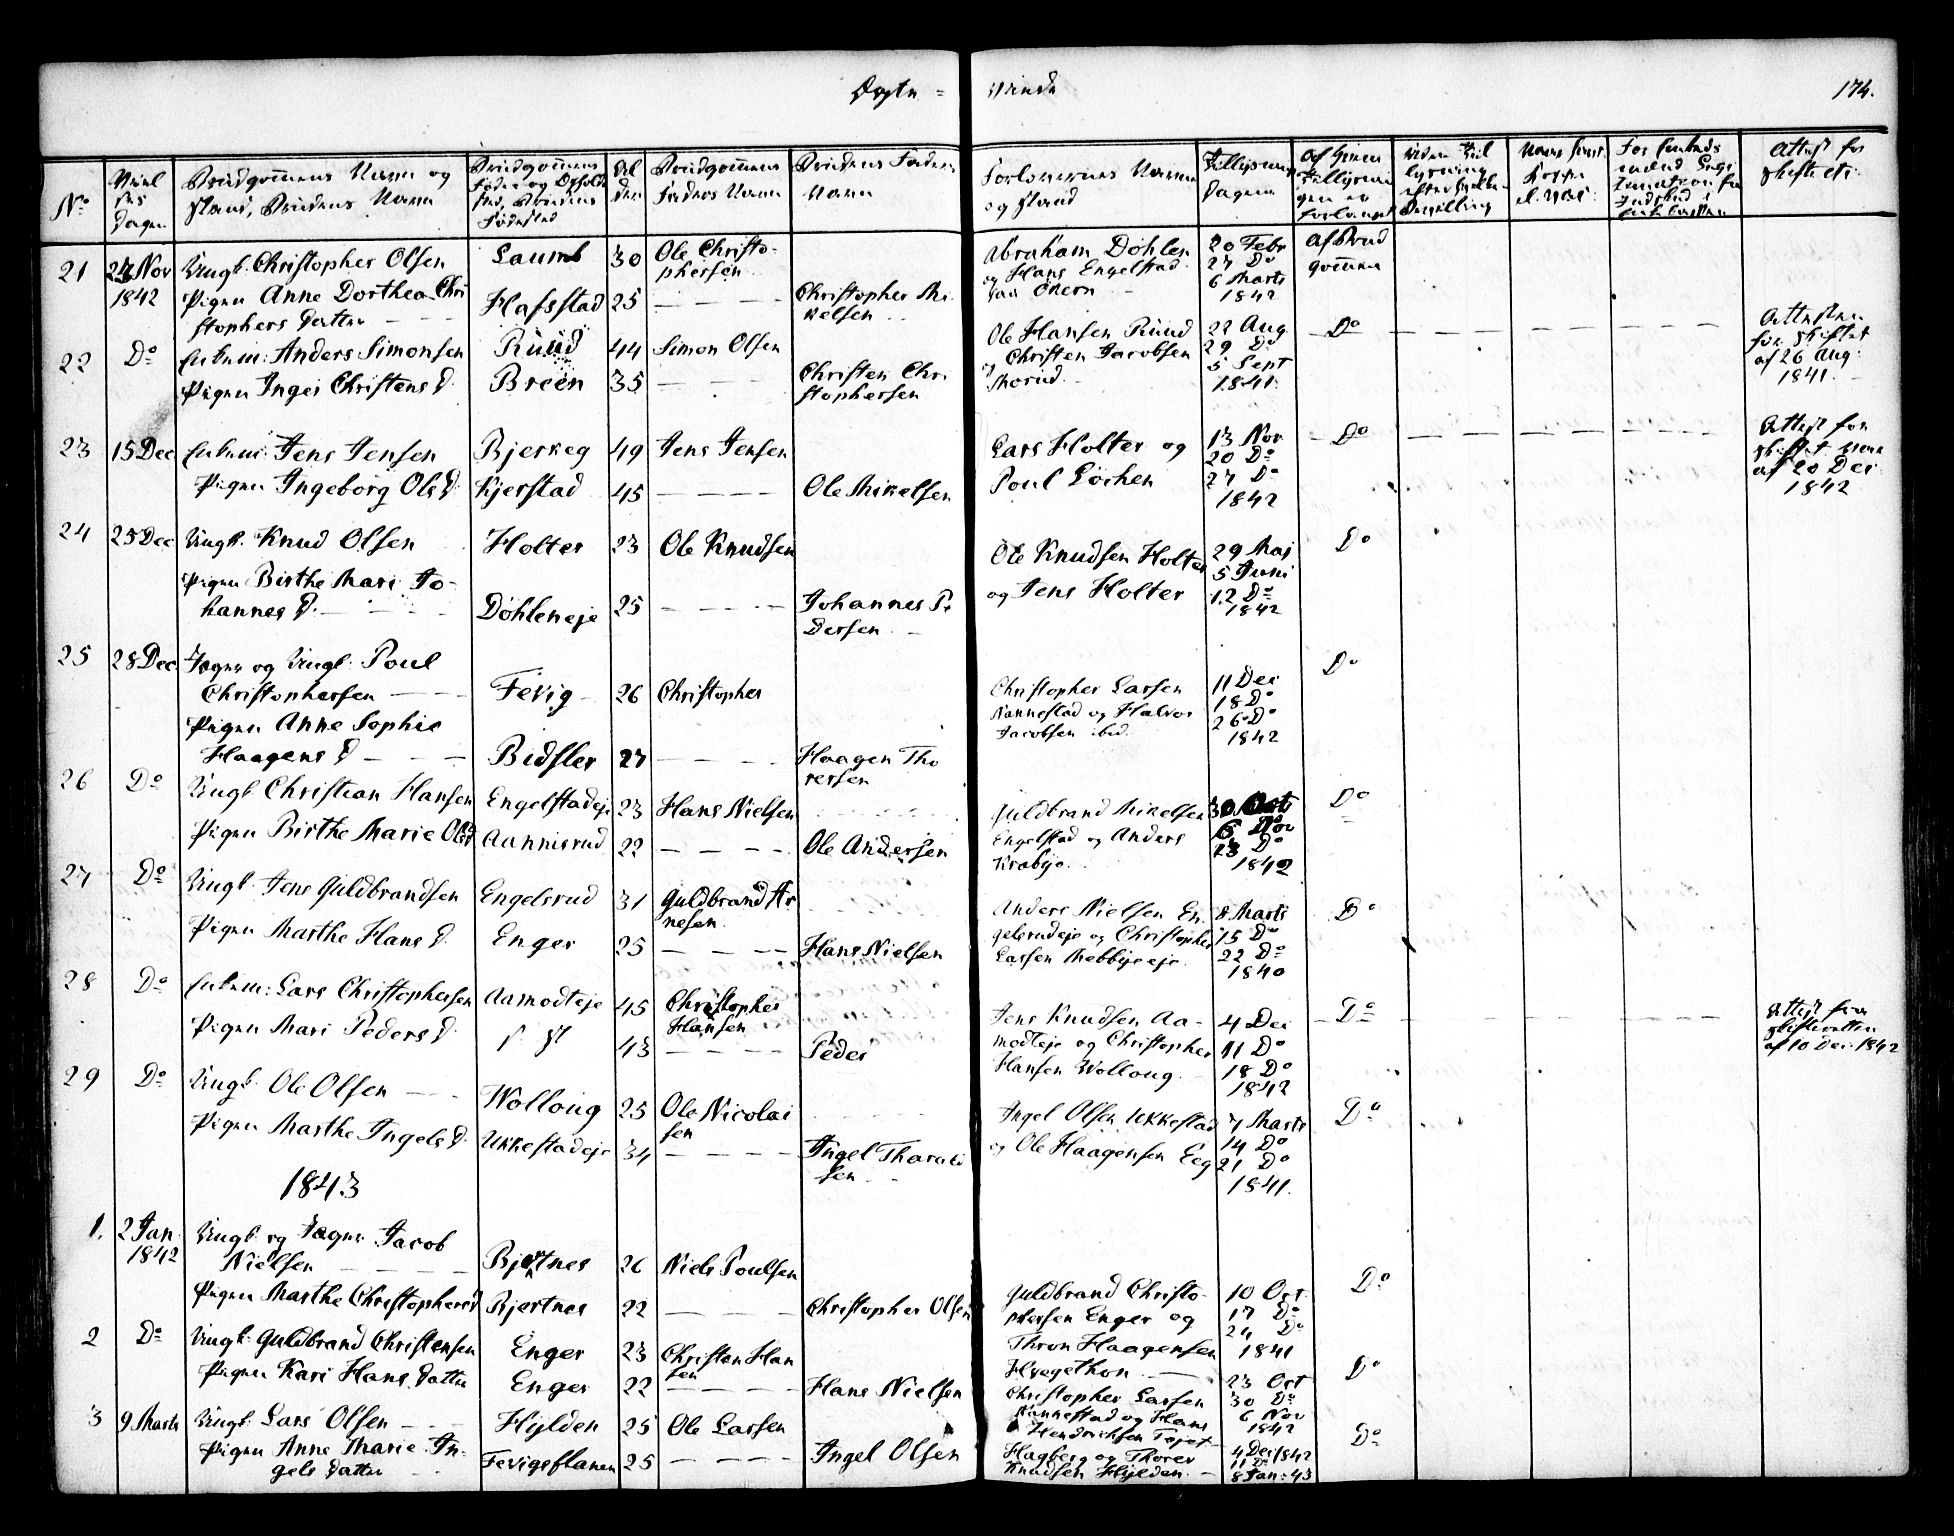 Ægte = Viede 174.
No Viel ses Dagen Brudgommens Navn og Stand, Brudens Navn Brudgommens Føde og Opholds Sted, Brudens Fødested Al deren Brudgommens Faders Navn Brudens Faders Navn Forlovernes Navne og Stand Tillysnings Dagene Af hvem Tillysnin gen er forlanget
Attest fra Skifteret
21 24 Nov 1842 Ungk. Christopher Olsen Laumb 30 Ole Christo-
phersen
Pigen Anne Dorthea Chri
stophers Datter Hafsstad 25 Christopher Mi
kelsen
Abraham Døhlen
og Hans Engelstad
20 Febr
27 Do
6 Marts
1842
Af Brud
gommen
22 Do Enkem: Anders Simonsen Ruud 44 Simon Olsen
Pigen Inger Christens D. Breen 35 Christen Chri
stophersen
Ole Hansen Ruud
og Christen Jacobsen
Morud
22 Aug
29 Do
5 Sept
1841
Do
Attesten
fra Skiftet
af 26 Aug:
1841
23 15 Dec Enkem: Jens Jensen Bjerkeg 49 Jens Jensen
Pigen Ingeborg Ols D. Kjerstad 45 Ole Mikelsen
Lars Holter og
Poul Løchen
13 Nov
20 Do
27 Do
1842
Do
Attest fra
af 20 Dec
1842
24 25 Dec Ungk. Knud Olsen Holter 23 Ole Knudsen
Pigen Birthe Mari Jo-
hannes D. Døhleneje 25 Johannes Pe
dersen
Ole Knudsen Holter
og Jens Holter
29 Maj
5 Juni
12 Do
1842
Do
25 28 Dec Jæger og Ungk. Poul
Christophersen Fevig 26 Christopher
Pigen Anne Sophie
Haagens D Bidsler 27 Haagen Tho
rersen
Christopher Larsen
Nannestad og Halvor
Jacobsen ibid.
11 Dec
18 Do
26 Do
1842
Do
26 Do Ungk. Christian Hansen Engelstadeje 23 Hans Nielsen
Pigen Birthe Marie Ols D Aannisrud 22 Ole Andersen
Guldbrand Mikelsen
Engelstad og Anders
Krabye
30 Oct
6 Nov
23 Do
1842
Do
27 Do Ungk. Jens Guldbrandsen Engelsrud 31 Guldbrand Ar
nesen
Pigen Marthe Hans D. Enger 25 Hans Nielsen
Anders Nielsen En
gelsrudeje og Christopher
Larsen Mebbyeeje
8 Marts
15 Do
22 Do
1840
Do
28 Do Enkem: Lars Christophersen Aamodteje 45 Christopher
Hansen
Pigen Mari Peders D. 43 Peder
Jens Knudsen Aa-
modteje og Christopher
Hansen Wolloug
4 Dec
11 Do
18 Do
1842
Do
Attest fra
Skifteretten
af 10 Dec. 1842
29 Do Ungk. Ole Olsen Wolloug 25 Ole Nicolai
sen
Pigen Marthe Ingels D. Ukkestadeje 34 Ingel Tharald
sen
Ingel Olsen Ukkestad
og Ole Haagensen Eeg
7 Marts
14 Do
21 Do
1841
Do
1843
1. 2 Jan 1842 Ungk. og Jæger Jacob
Nielsen Bjertnes 26 Niels Poulsen
Pigen Marthe Christophers D Bjertnes 22 Christopher Olsen
Guldbrand Christo-
phersen Enger og
Thron Haagensen
Hvegethon
10 Oct
17 Do
24 Do
1841
Do
2 Do Ungk. Guldbrand Christensen Enger 23 Christen Han
sen
Pigen Kari Hans Datter Enger 22 Hans Nielsen
Christopher Larsen
Nannestad og Hans
Hendrichsen
23 Oct
30 Do
6 Nov
1842
Do
3 9 Marts Ungk. Lars Olsen Hylden 25 Ole Larsen
Pigen Anne Marie In-
gels Datter 25 Ingel Olsen
Hagberg og Thorer
Knudsen Hylden
4 Dec 1842
11 Do
8 Jan: 43
Do